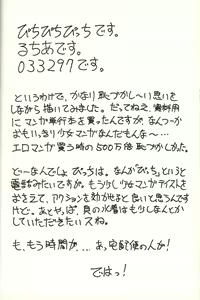 ぴちぴちぴっちです。
るちあです。
033297です。
というわけで、かなり恥ずかし～い思いを
しながら描いてみました。だってねえ、資料用
にマンガ単行本を買ったんですが、なんつーか
おもいっきり少女マンガなんだもんな～…
エロマンガ買う時の500万倍恥ずかしかった。
どーなんでしょ、ぴっちは。なんかぴっちというと
電話みたいですが。もう少し少女マンガテイストを
おさえて、アクションを効かせると良いと思うんです
けど。あとやっぱ、貝の水着はもう少しなんとか
していただきたいスね。
も、もう時間が…。あ、宅配便の人が！
ではっ！